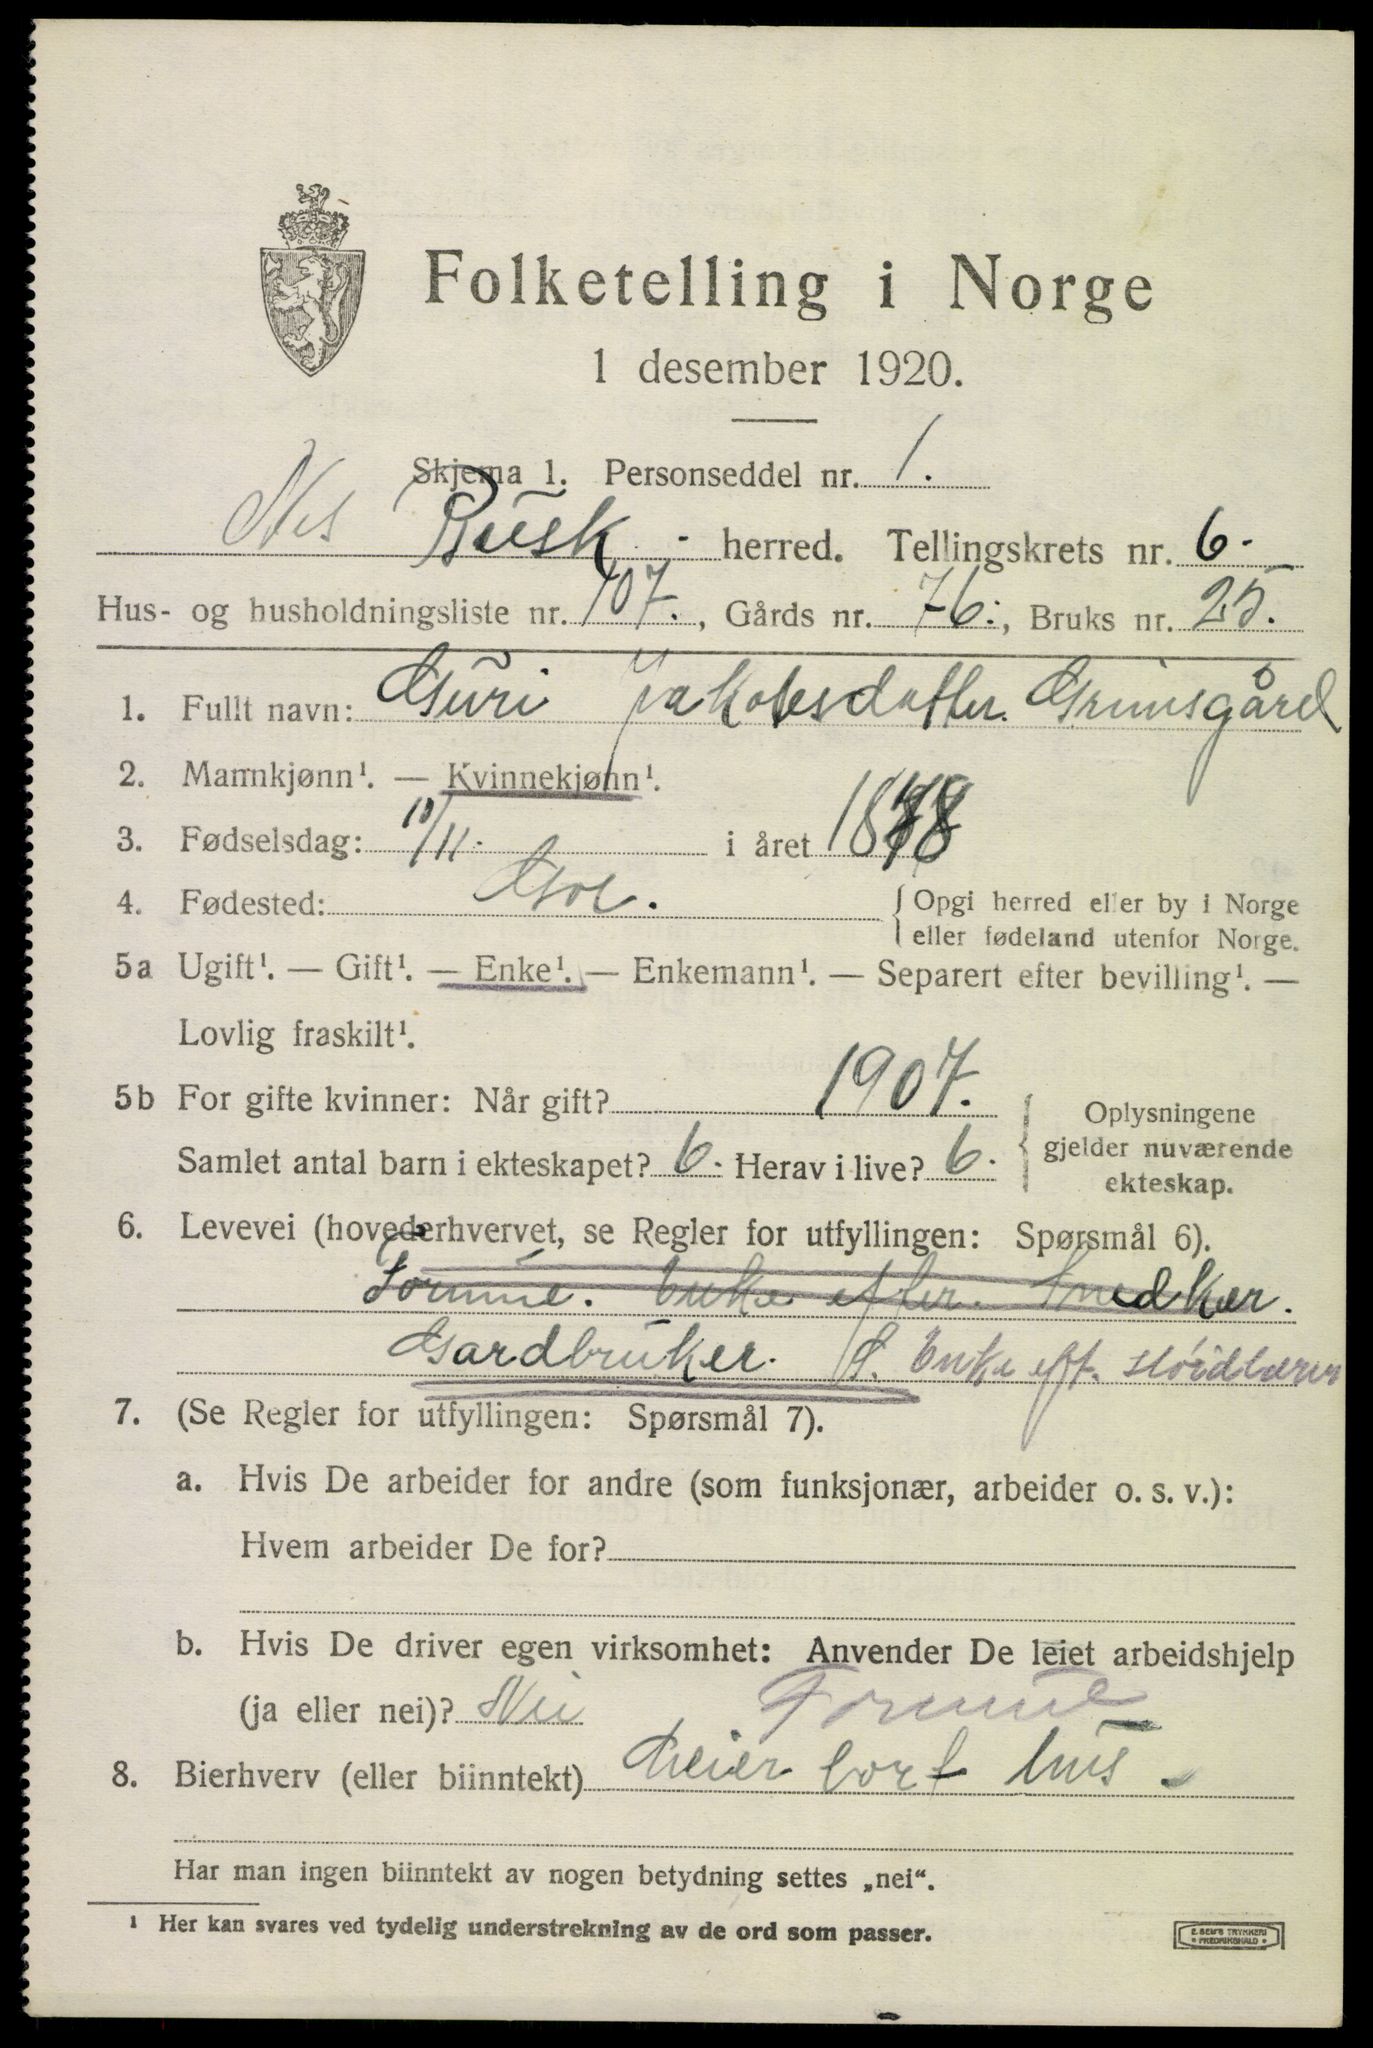 Folketelling i Norge
1 desember 1920.
Skjema 1. Personseddel nr. 1.
Nes Busk - herred. Tellingskrets nr. 6.
Hus- og husholdningsliste nr. 107., Gårds nr. 76., Bruks nr. 25.
1. Fullt navn: Guri Jakobsdatter. Grimsgård
2. Mannkjønn¹. — Kvinnekjønn¹.
3. Fødselsdag: 10/11. i året 1878
4. Fødested: Gol. { Opgi herred eller by i Norge
eller fødeland utenfor Norge.
5a Ugift¹. — Gift¹. — Enke¹. — Enkemann¹. — Separert efter bevilling¹. —
Lovlig fraskilt¹.
5b For gifte kvinner: Når gift? 1907.
Samlet antal barn i ekteskapet? 6. Herav i live? 6.
Oplysningene
gjelder nuværende
ekteskap.
6. Levevei (hovederhvervet, se Regler for utfyllingen: Spørsmål 6).
Formue. Enke efter. Snedker.
Gardbruker. S. Enke eft. sløidlærer
7. (Se Regler for utfyllingen: Spørsmål 7).
a. Hvis De arbeider for andre (som funksjonær, arbeider o. s. v.):
Hvem arbeider De for?
b. Hvis De driver egen virksomhet: Anvender De leiet arbeidshjelp
(ja eller nei)? Nei Formue
8. Bierhverv (eller biinntekt) Leier bort hus
Har man ingen biinntekt av nogen betydning settes „nei“.
¹ Her kan svares ved tydelig understrekning av de ord som passer.
E. SEM'S TRYKKERI
• FREDRIKSHALD •